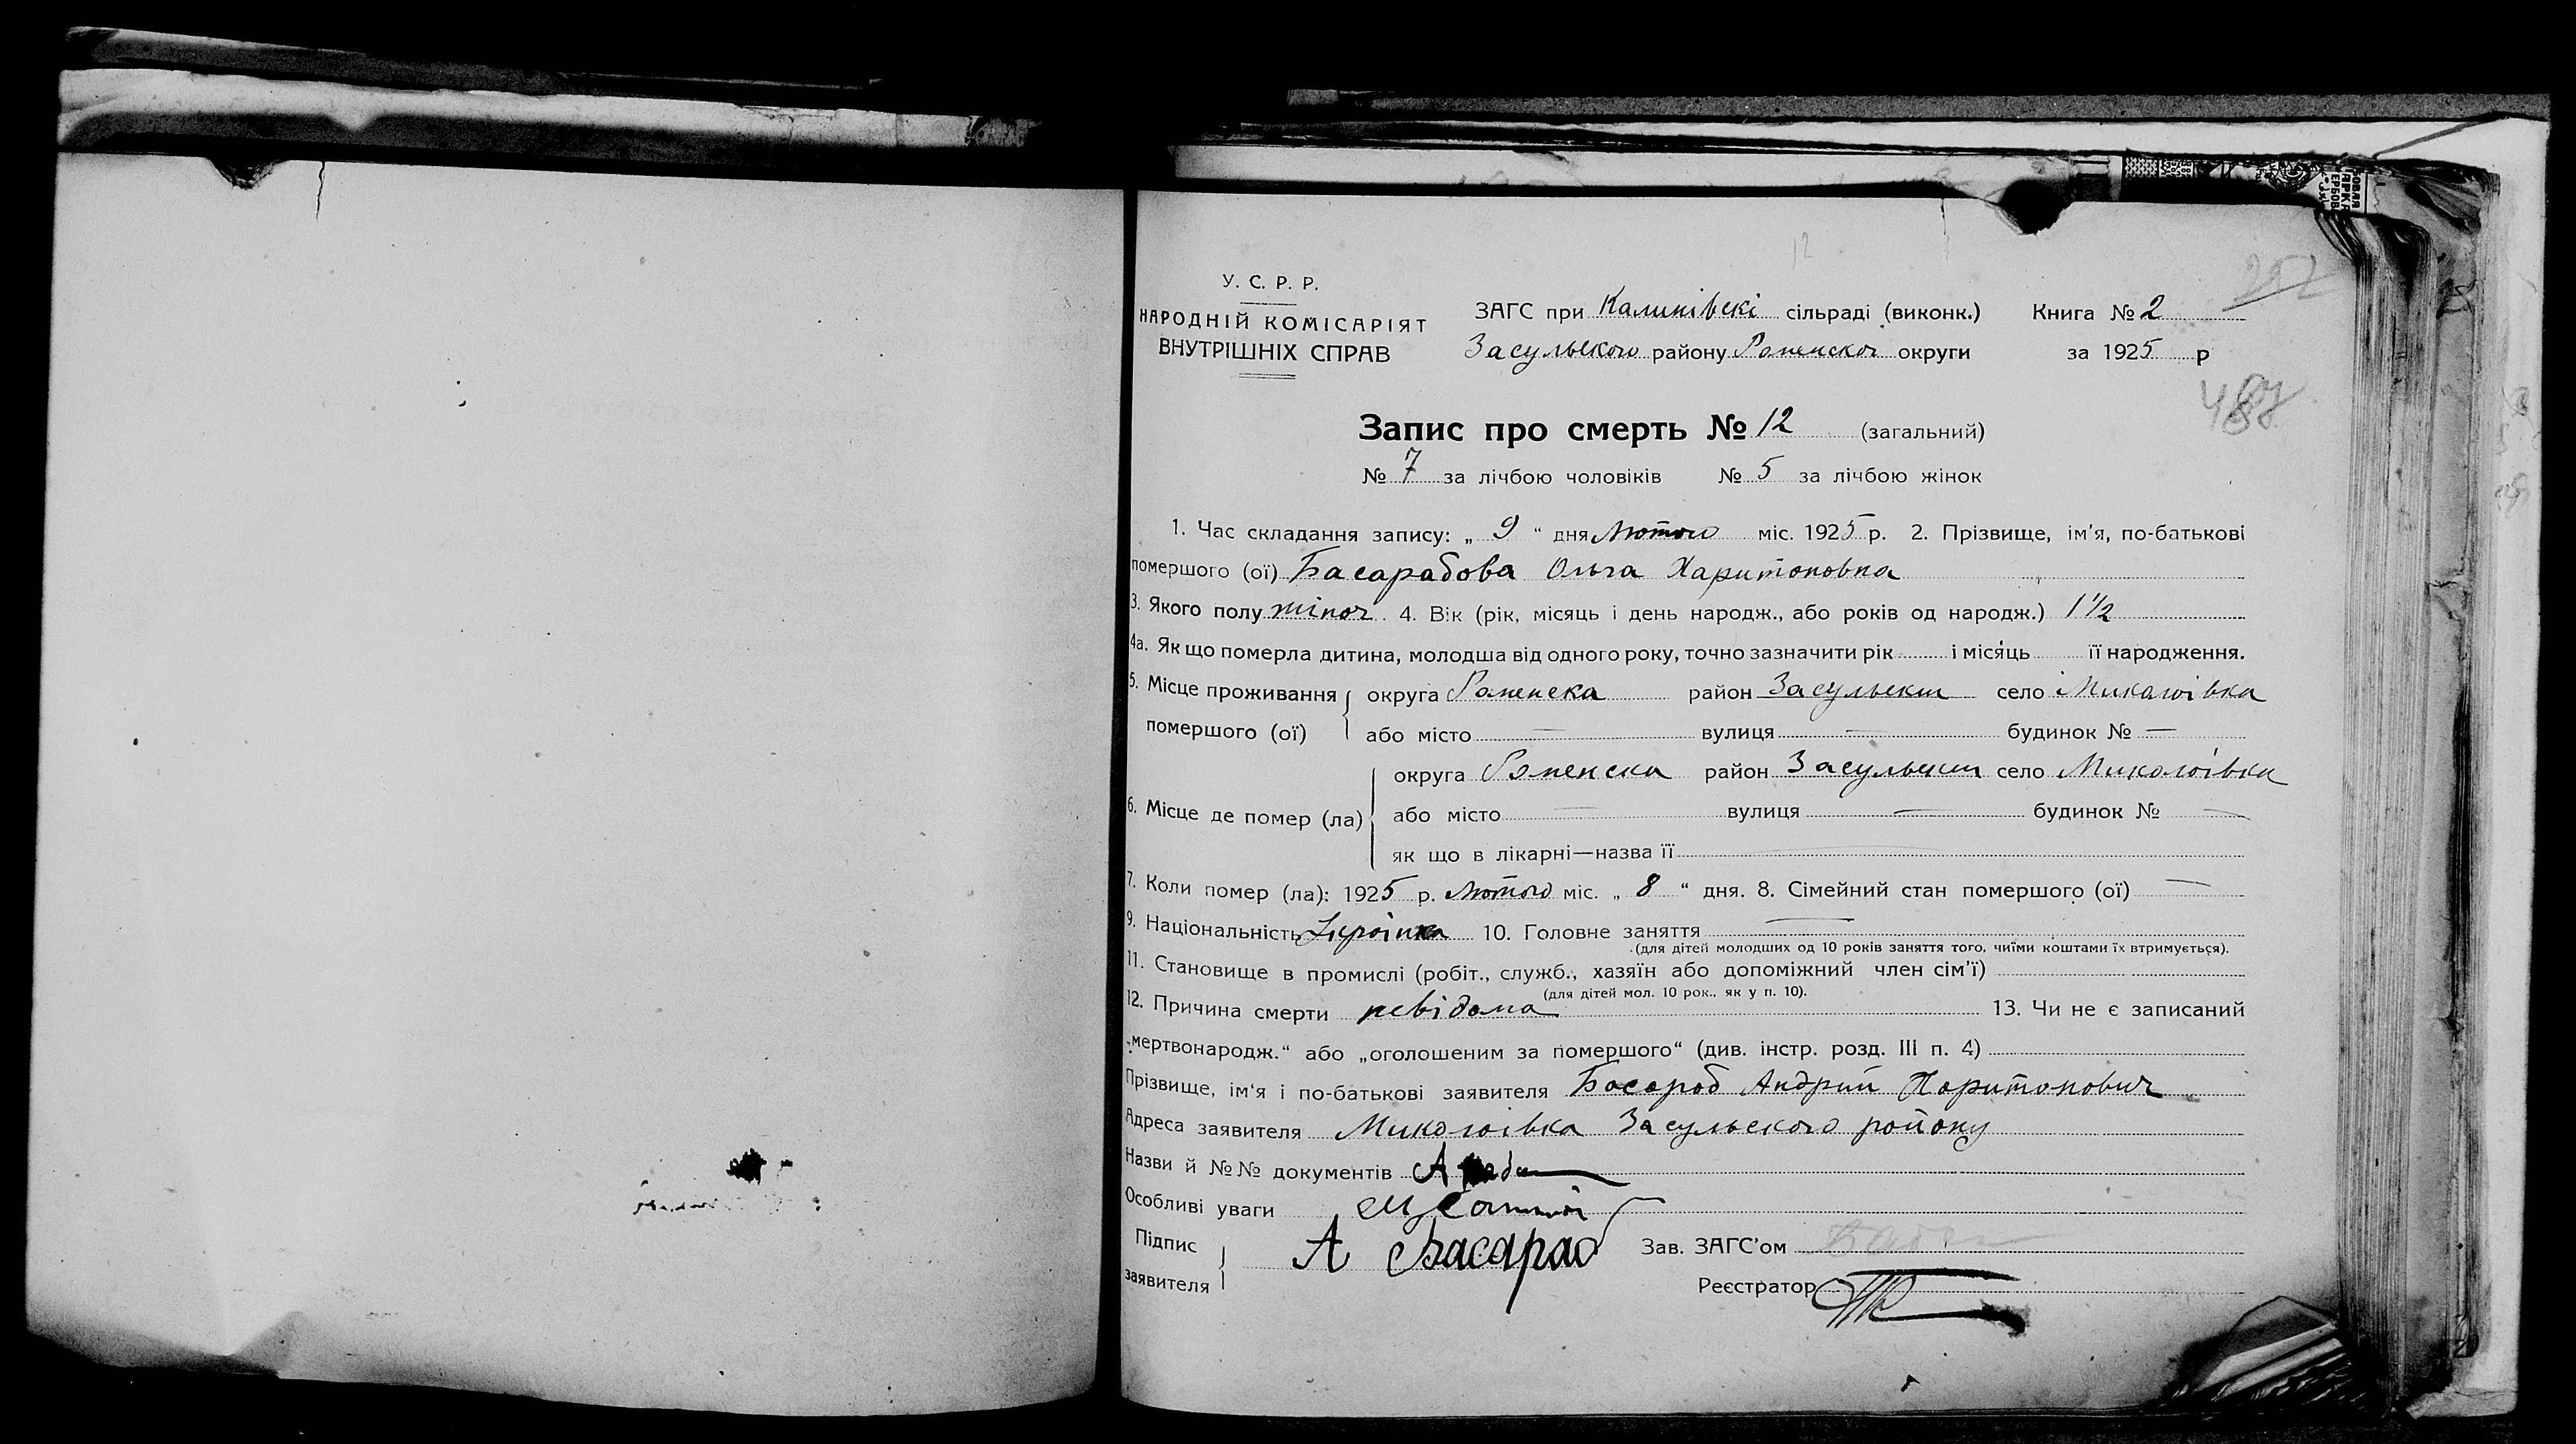 У. С. Р. Р.
НАРОДНІЙ КОМІСАРІЯТ
ВНУТРІШНІХ СПРАВ
ЗАГС при Калинівскі сільраді (виконк.) Книга № 2
Засульского району Роменскої округи за 1925 р
12
252
Запис про смерть № 12 (загальний)
№ 7 за лічбою чоловіків № 5 за лічбою жінок
1. Час складання запису: „ 9 “ дня Лютого міс. 1925 р. 2. Прізвище, ім'я, по-батькові
помершого (ої) Басарабова Ольга Харитоновна
3. Якого полу жіноч. 4. Вік (рік, місяць і день народж., або років од народж.) 1 1/2
4а. Як що померла дитина, молодша від одного року, точно зазначити рік і місяць її народження.
5. Місце проживання помершого (ої) округа Роменска район Засульский село Миколаївка
або місто — вулиця — будинок № —
6. Місце де помер (ла) округа Роменска район Засульский село Миколаївка
або місто — вулиця — будинок № —
як що в лікарні—назва її
7. Коли помер (ла): 1925 р. Лютого міс. „ 8 “ дня. 8. Сімейний стан помершого (ої) —
9. Національність Українка 10. Головне заняття —
(для дітей молодших од 10 років заняття того, чиїми коштами їх втримується).
11. Становище в промислі (робіт., служб., хазяїн або допоміжний член сім'ї)
(для дітей мол. 10 рок., як у п. 10).
12. Причина смерти невідома 13. Чи не є записаний
„мертвонародж.“ або „оголошеним за помершого“ (див. інстр. розд. III п. 4)
Прізвище, ім'я і по-батькові заявителя Басараб Андрий Харитонович
Адреса заявителя Миколаївка Засульского району
Назви й №№ документів
Особливі уваги
Підпис заявителя А Басараб Зав. ЗАГС'ом
Реєстратор